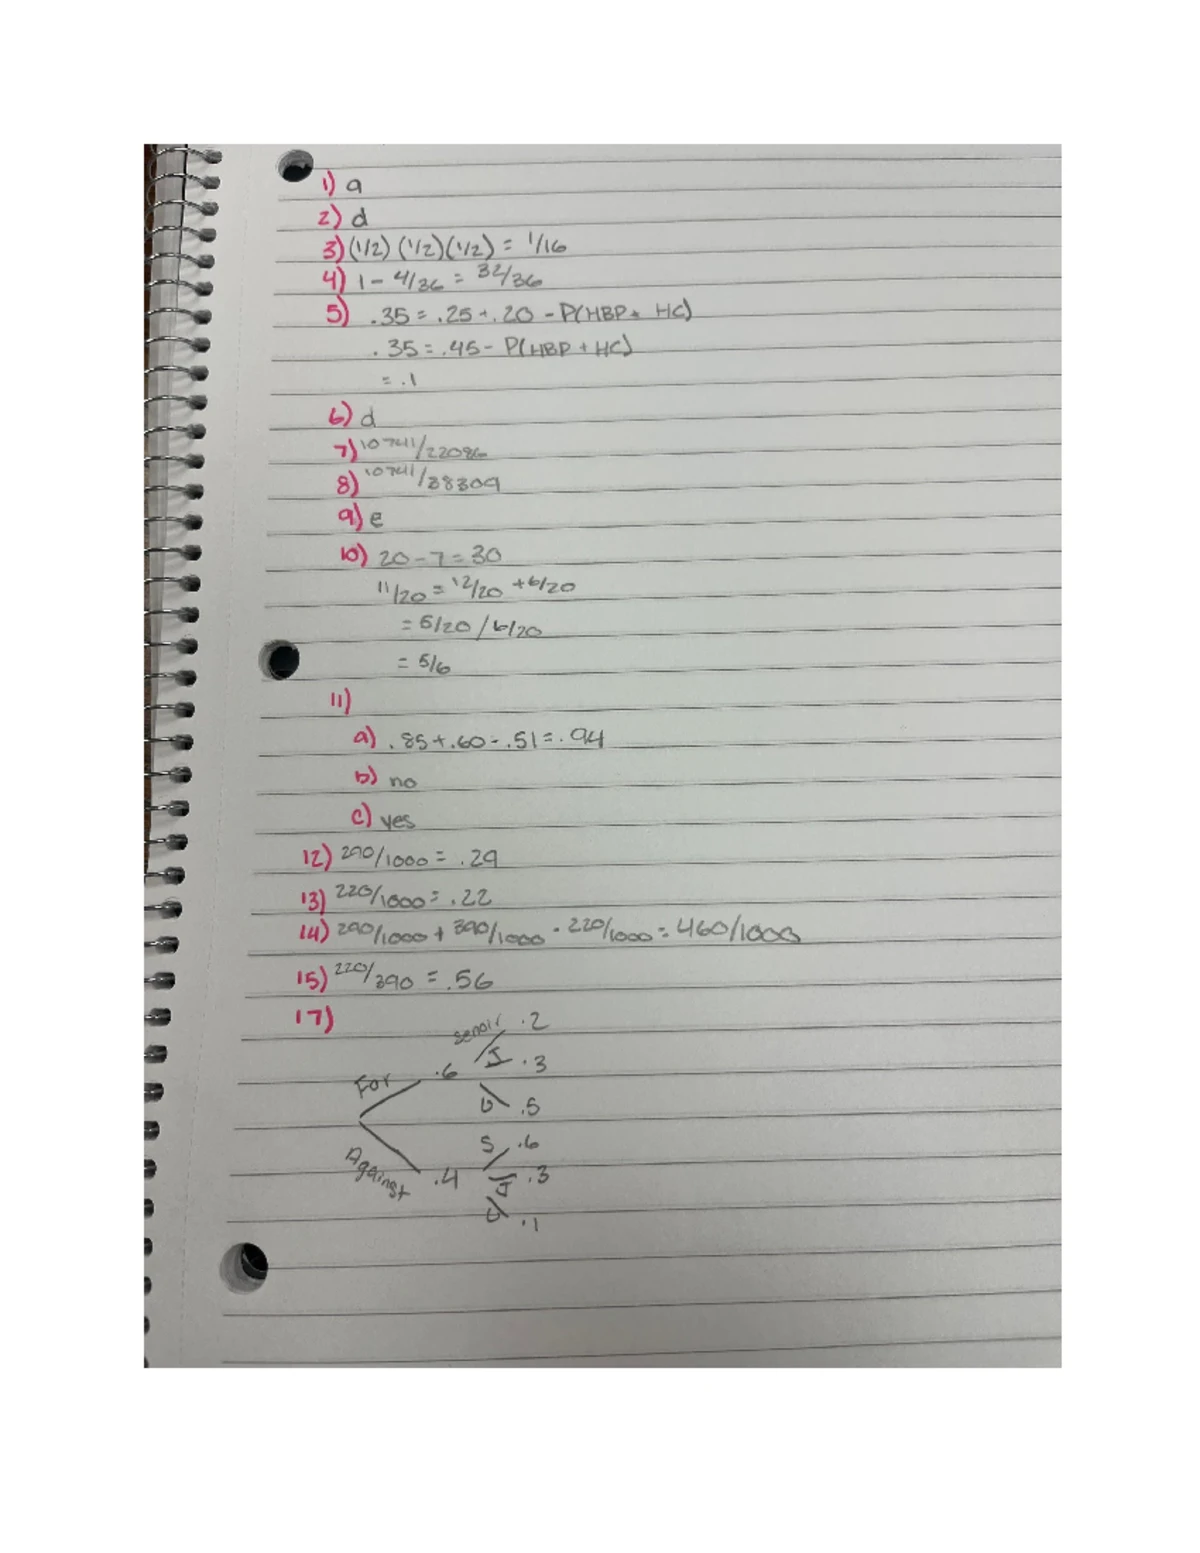 1) a
2) d
3) (1/2) (1/2)(1/2) = 1/16
4) 1 - 4/36 = 32/36
5) .35 = .25 + .20 - P(HBP + HC)
.35 = .45 - P(HBP + HC)
= .1
6) d
7) 10741/22086
8) 10741/38309
9) e
10) 20 - 7 = 30
11/20 = 12/20 + 6/20
= 5/20 / 6/20
= 5/6
11)
a) .85 + .60 - .51 = .94
b) no
c) yes
12) 290/1000 = .29
13) 220/1000 = .22
14) 290/1000 + 390/1000 - 220/1000 = 460/1000
15) 220/390 = .56
17)
senoir .2
For .6 J .3
U .5
S .6
Against .4 J .3
U .1